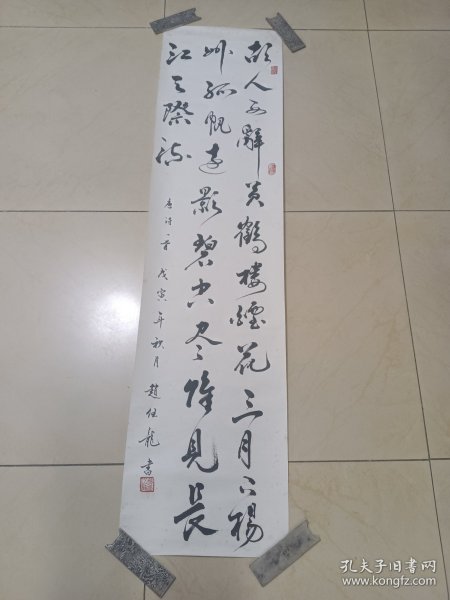 故人西辭黃鶴樓煙花三月下揚
州孤帆遠影碧空盡惟見長
江天際流
唐诗一首 戊寅年秋月 趙任龍書
孔夫子旧书网
www.kongfz.com